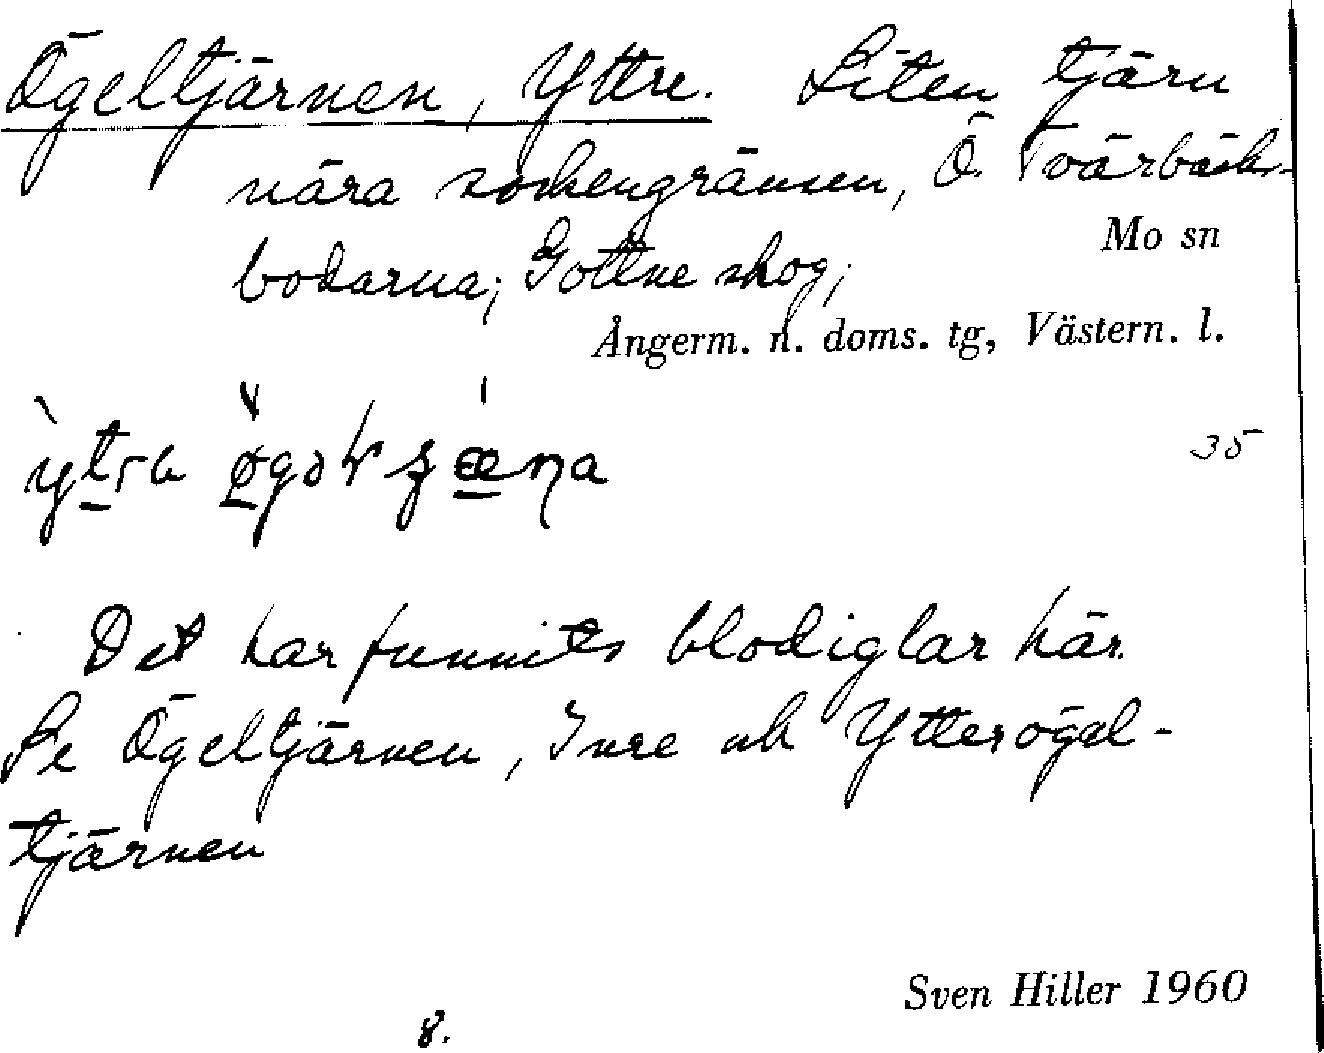 Ögeltjärnen, Yttre. Liten tjärn
nära sockengränsen, Ö. Tvärbäcks-
Mo sn
bodarna; Gottne skog;
Ångerm. n. doms. tg, Västern. l.
35
Det har funnits blodiglar här.
Se Ögeltjärnen, Inre och Ytterögel-
tjärnen
Sven Hiller 1960
8.